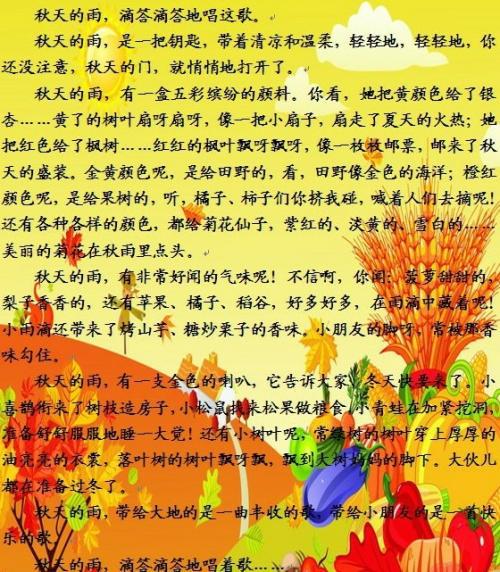 秋天的雨，滴答滴答地唱这歌。
秋天的雨，是一把钥匙，带着清凉和温柔，轻轻地，轻轻地，你
还没注意，秋天的门，就悄悄地打开了。。
秋天的雨，有一盒五彩缤纷的颜料。你看，她把黄颜色给了银
杏……黄了的树叶扇呀扇呀，像一把小扇子，扇走了夏天的火热；她
把红色给了枫树……红红的枫叶飘呀飘呀，像一枚枚邮票，邮来了秋
天的盛装。金黄颜色呢，是给田野的，看，田野像金色的海洋；橙红
颜色呢，是给果树的，听，橘子、柿子们你挤我碰，喊着人们去摘呢！
还有各种各样的颜色，都给菊花仙子，紫红的、淡黄的、雪白的……
美丽的菊花在秋雨里点头。
秋天的雨，有非常好闻的气味呢！不信啊，你闻：菠萝甜甜的，
梨子香香的，还有苹果、橘子、稻谷，好多好多，在雨滴中藏着呢！
小雨滴还带来了烤山芋、糖炒栗子的香味。小朋友的脚呀、常被那香
味勾住。
秋天的雨，有一支金色的喇叭，它告诉大家，冬天快要来了。小
喜鹊衔来了树枝造房子,小松鼠找来松果做粮食,小青蛙在加紧挖洞,
准备舒舒服服地睡一大觉！还有小树叶呢，常绿树的树叶穿上厚厚的
油亮亮的衣裳，落叶树的树叶飘呀飘，飘到大树妈妈的脚下。大伙儿
都在准备过冬了。
秋天的雨，带给大地的是一曲丰收的歌，带给小朋友的是一首快
乐的歌。
秋天的雨，滴答滴答地唱着歌……